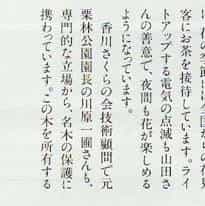 客にお茶を接待しています。ライ
トアップする電気の点滅も山田さ
んの善意で、夜間も花が楽しめる
ようになっています。
香川さくらの会技術顧問で元
栗林公園園長の川原一圃さんも、
専門的な立場から、名木の保護に
携わっています。この木を所有する